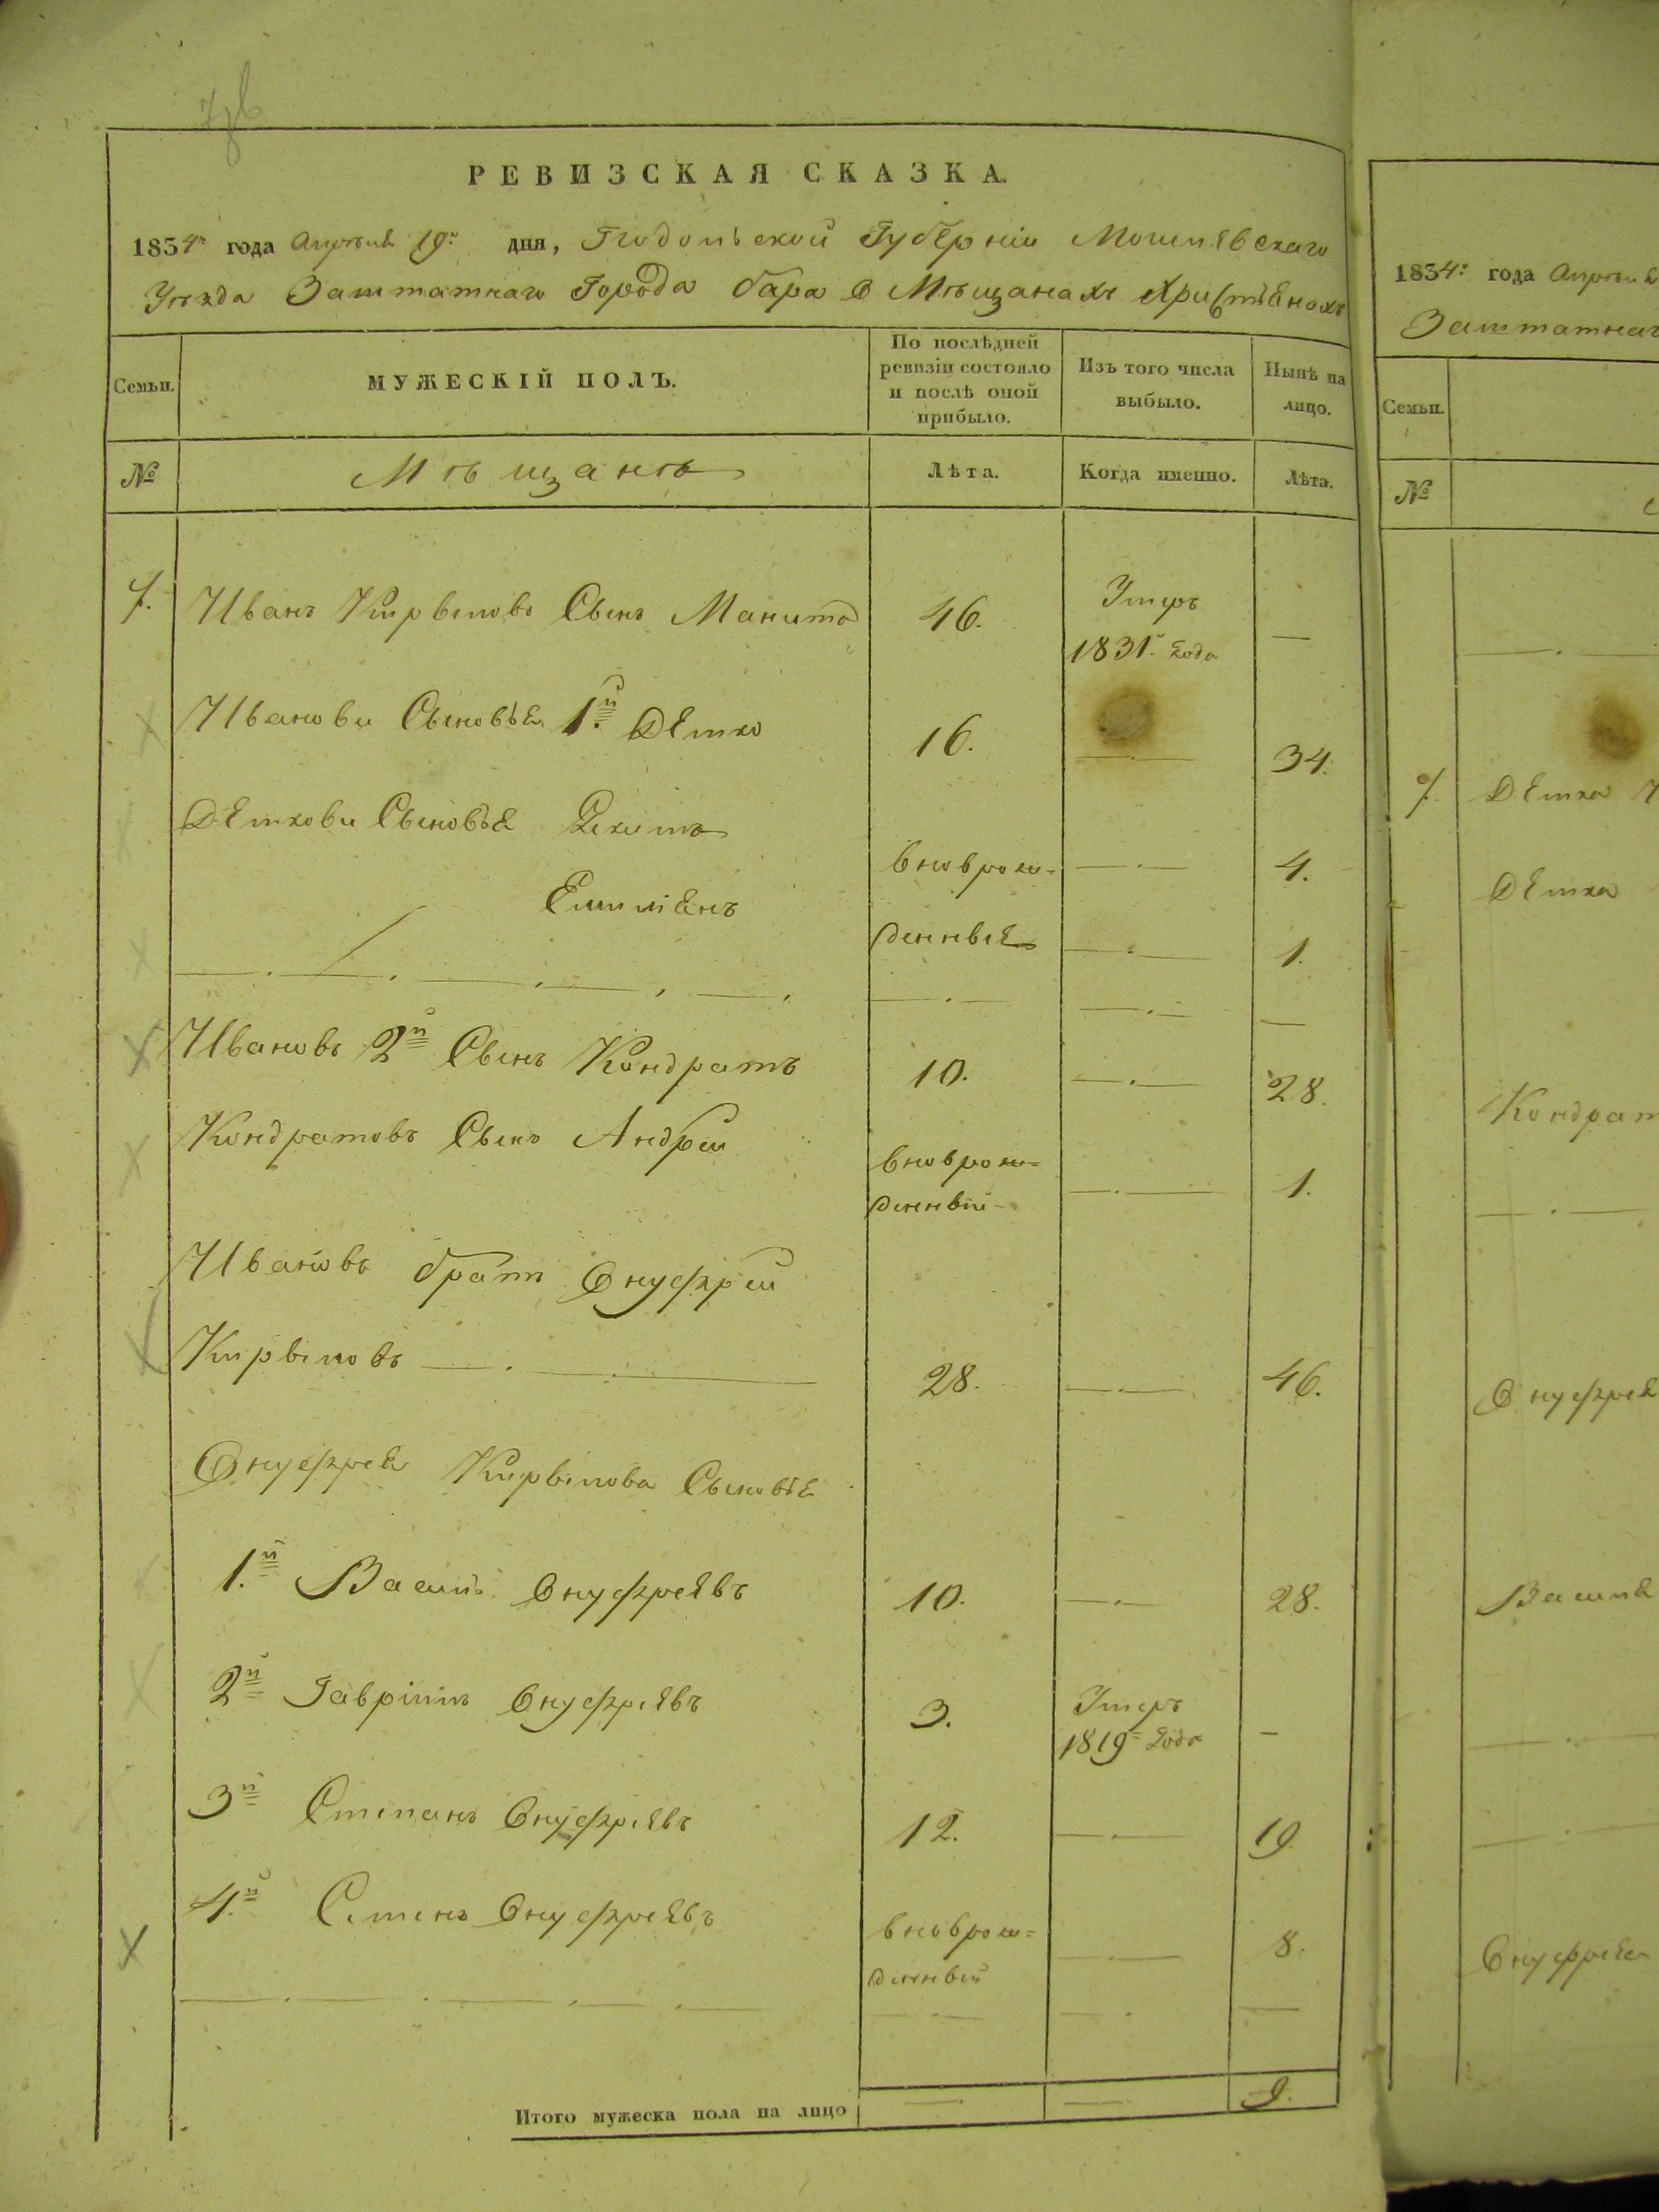 РЕВИЗСКАЯ СКАЗКА.
1834го года Апреля 19го дня, Подольской Губерніи Могилевскаго
Уезда Заштатнаго Города бара О Мѣщанахъ Христіянахъ
Семьи.
МУЖЕСКІЙ ПОЛЪ.
По послѣдней
ревизіи состояло
и послѣ оной
прибыло.
Изъ того числа
выбыло.
Нынѣ на
лицо.
№
Мѣщанъ
Лѣта.
Когда именно.
Лѣта.
Иванъ Кирыловъ Сынъ 46. Умеръ
1831го года —
Ивановы Сыновья 1й Детко 16. 34.
Детковы Сыновья
Емиліянъ
вноврож-
денныя
4.
1.
Ивановъ 2й Сынъ Кондратъ 10. 28.
Кондратовъ Сынъ Андрей вноврож-
денный 1.
Ивановъ братъ Онуфрей
Кирыловъ 28. 46.
Онуфрея Кирылова Сыновья
1й Василь Онуфреявъ 10. 28.
2й Гаврііло Онуфреявъ 3. Умеръ
1819го года —
3й Степанъ Онуфреявъ 12. 19
4й Семенъ Онуфреявъ вноврож-
денный 8.
Итого мужеска пола на лицо 9.
1834го года Апреля
Заштатнаг
Семьи.
№
Детка
Детка
Кондрат
Онуфрея
Василя
Онуфрея